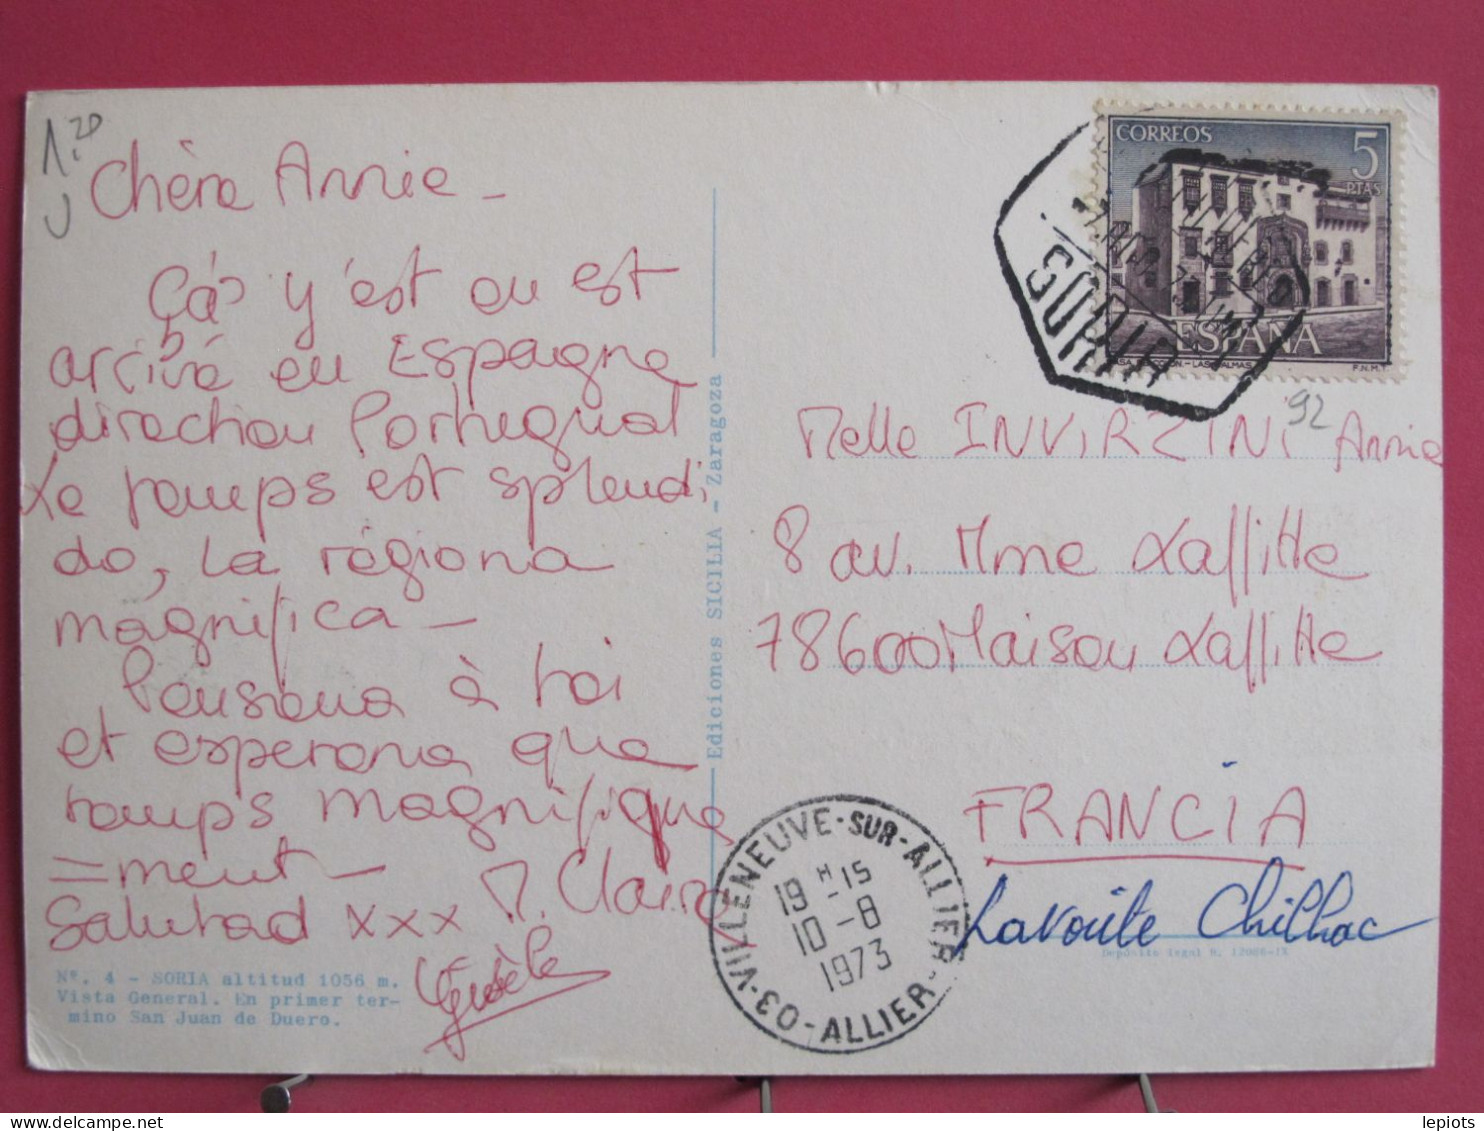 1.20
Chère Annie -
Ça y'est on est
arrivé en Espagne
direction Portugual
Le temps est splendi
do, la régiona
magnifica -
Pensona à toi
et esperona que
temps magnifique
=ment -
Salutad xxx M. Claire
Gisèle
Nº. 4 - SORIA altitud 1056 m.
Vista General. En primer ter-
mino San Juan de Duero.
Ediciones SICILIA - Zaragoza
CORREOS 5
PTAS
ESPAÑA
F.N.M.T.
SORIA
92
Melle INVIRZINI Annie
8 av. Mme Laffitte
78600 Maison Laffitte
FRANCIA
Lavoûte Chilhac
Depósito legal B. 12006-IX
VILLENEUVE-SUR-ALLIER
19 H -15
10 -8
1973
03-ALLIER
lepiots